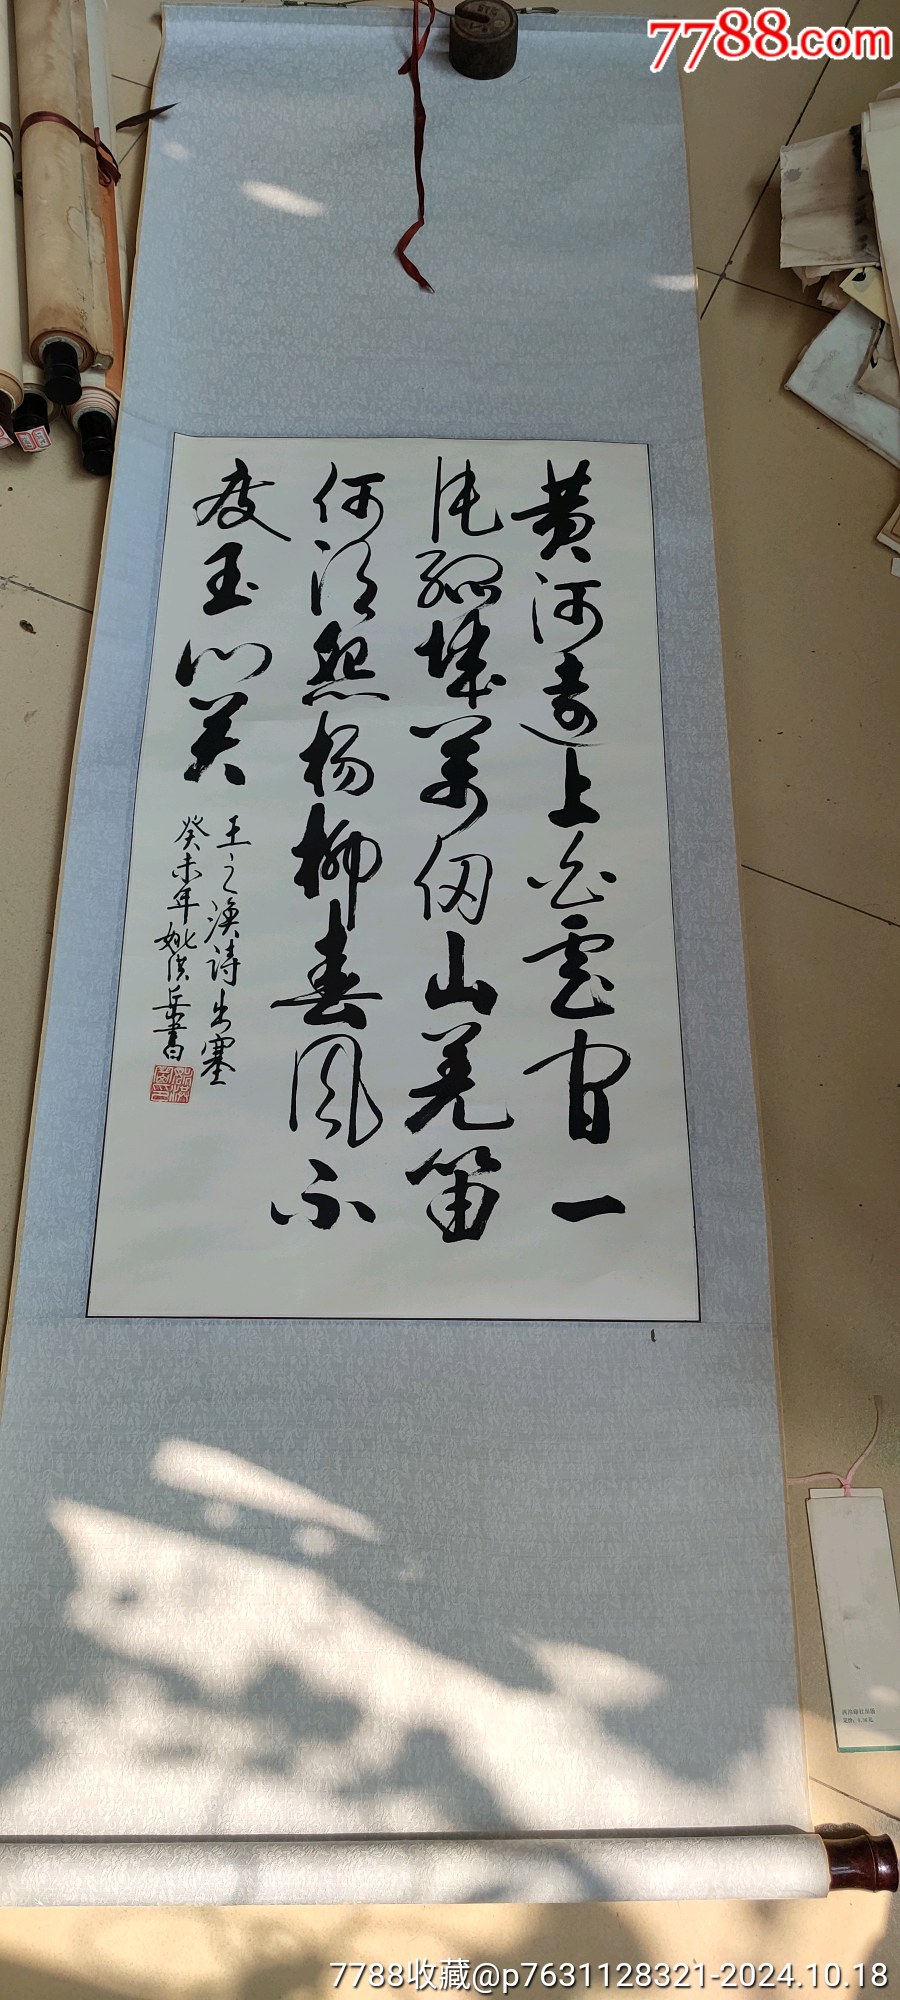 7788.com
黄河遠上白雲間一
片孤城萬仞山羌笛
何須怨楊柳春風不
度玉門關
王之渙詩出塞
癸未年姚洪岳書
7788收藏@p7631128321-2024.10.18